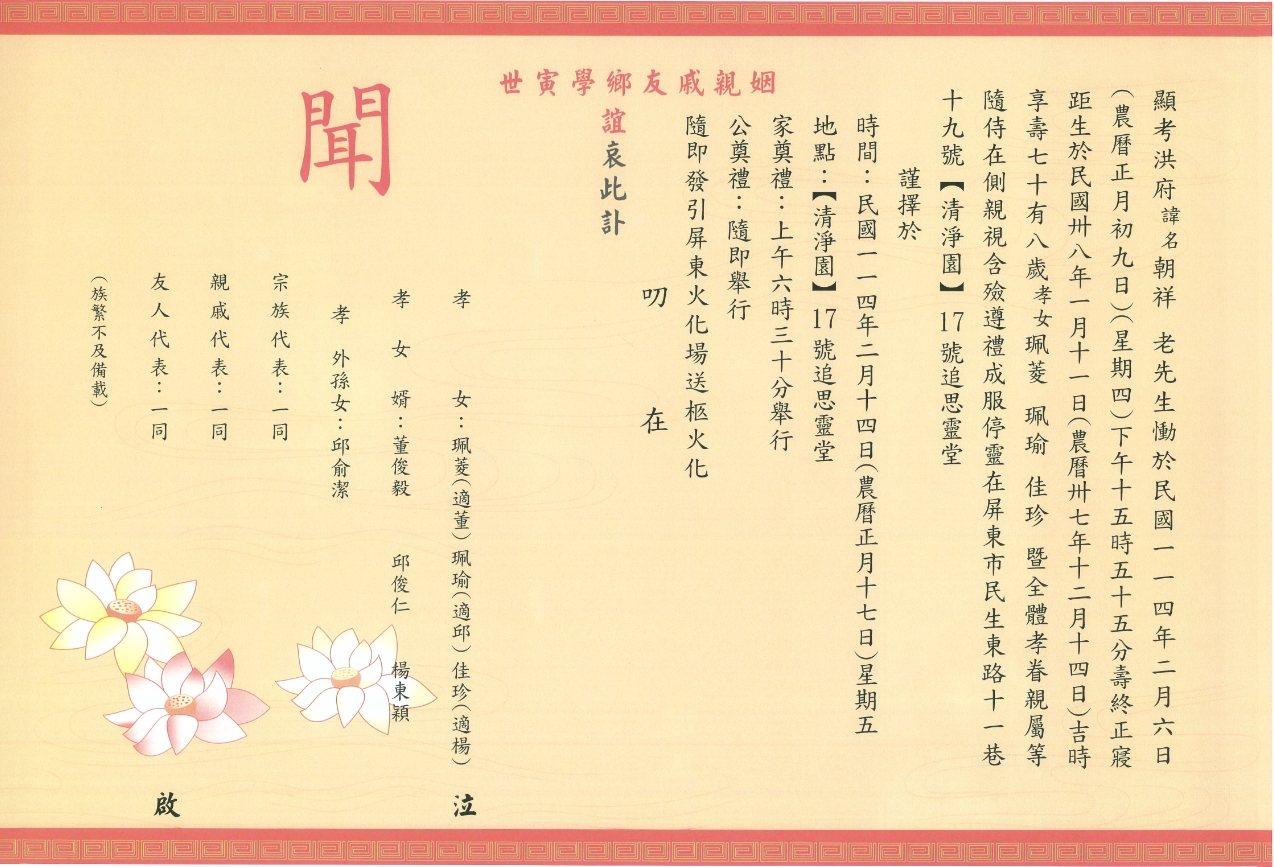 顯考洪府諱名朝祥 老先生慟於民國一一四年二月六日
(農曆正月初九日)(星期四)下午十五時五十五分壽終正寢
距生於民國卅八年一月十一日(農曆卅七年十二月十四日)吉時
享壽七十有八歲孝女珮菱 珮瑜 佳珍 暨全體孝眷親屬等
隨侍在側親視含殮遵禮成服停靈在屏東市民生東路十一巷
十九號【清淨園】17號追思靈堂
謹擇於
時間：民國一一四年二月十四日(農曆正月十七日)星期五
地點：【清淨園】17號追思靈堂
家奠禮：上午六時三十分舉行
公奠禮：隨即舉行
隨即發引屏東火化場送柩火化
叨在
姻親戚友鄉學寅世
誼哀此訃
聞
孝 女：珮菱(適董)珮瑜(適邱)佳珍(適楊) 泣
孝女婿：董俊毅 邱俊仁 楊東穎
孝外孫女：邱俞潔
宗族代表：一同
親戚代表：一同
友人代表：一同 啟
(族繁不及備載)